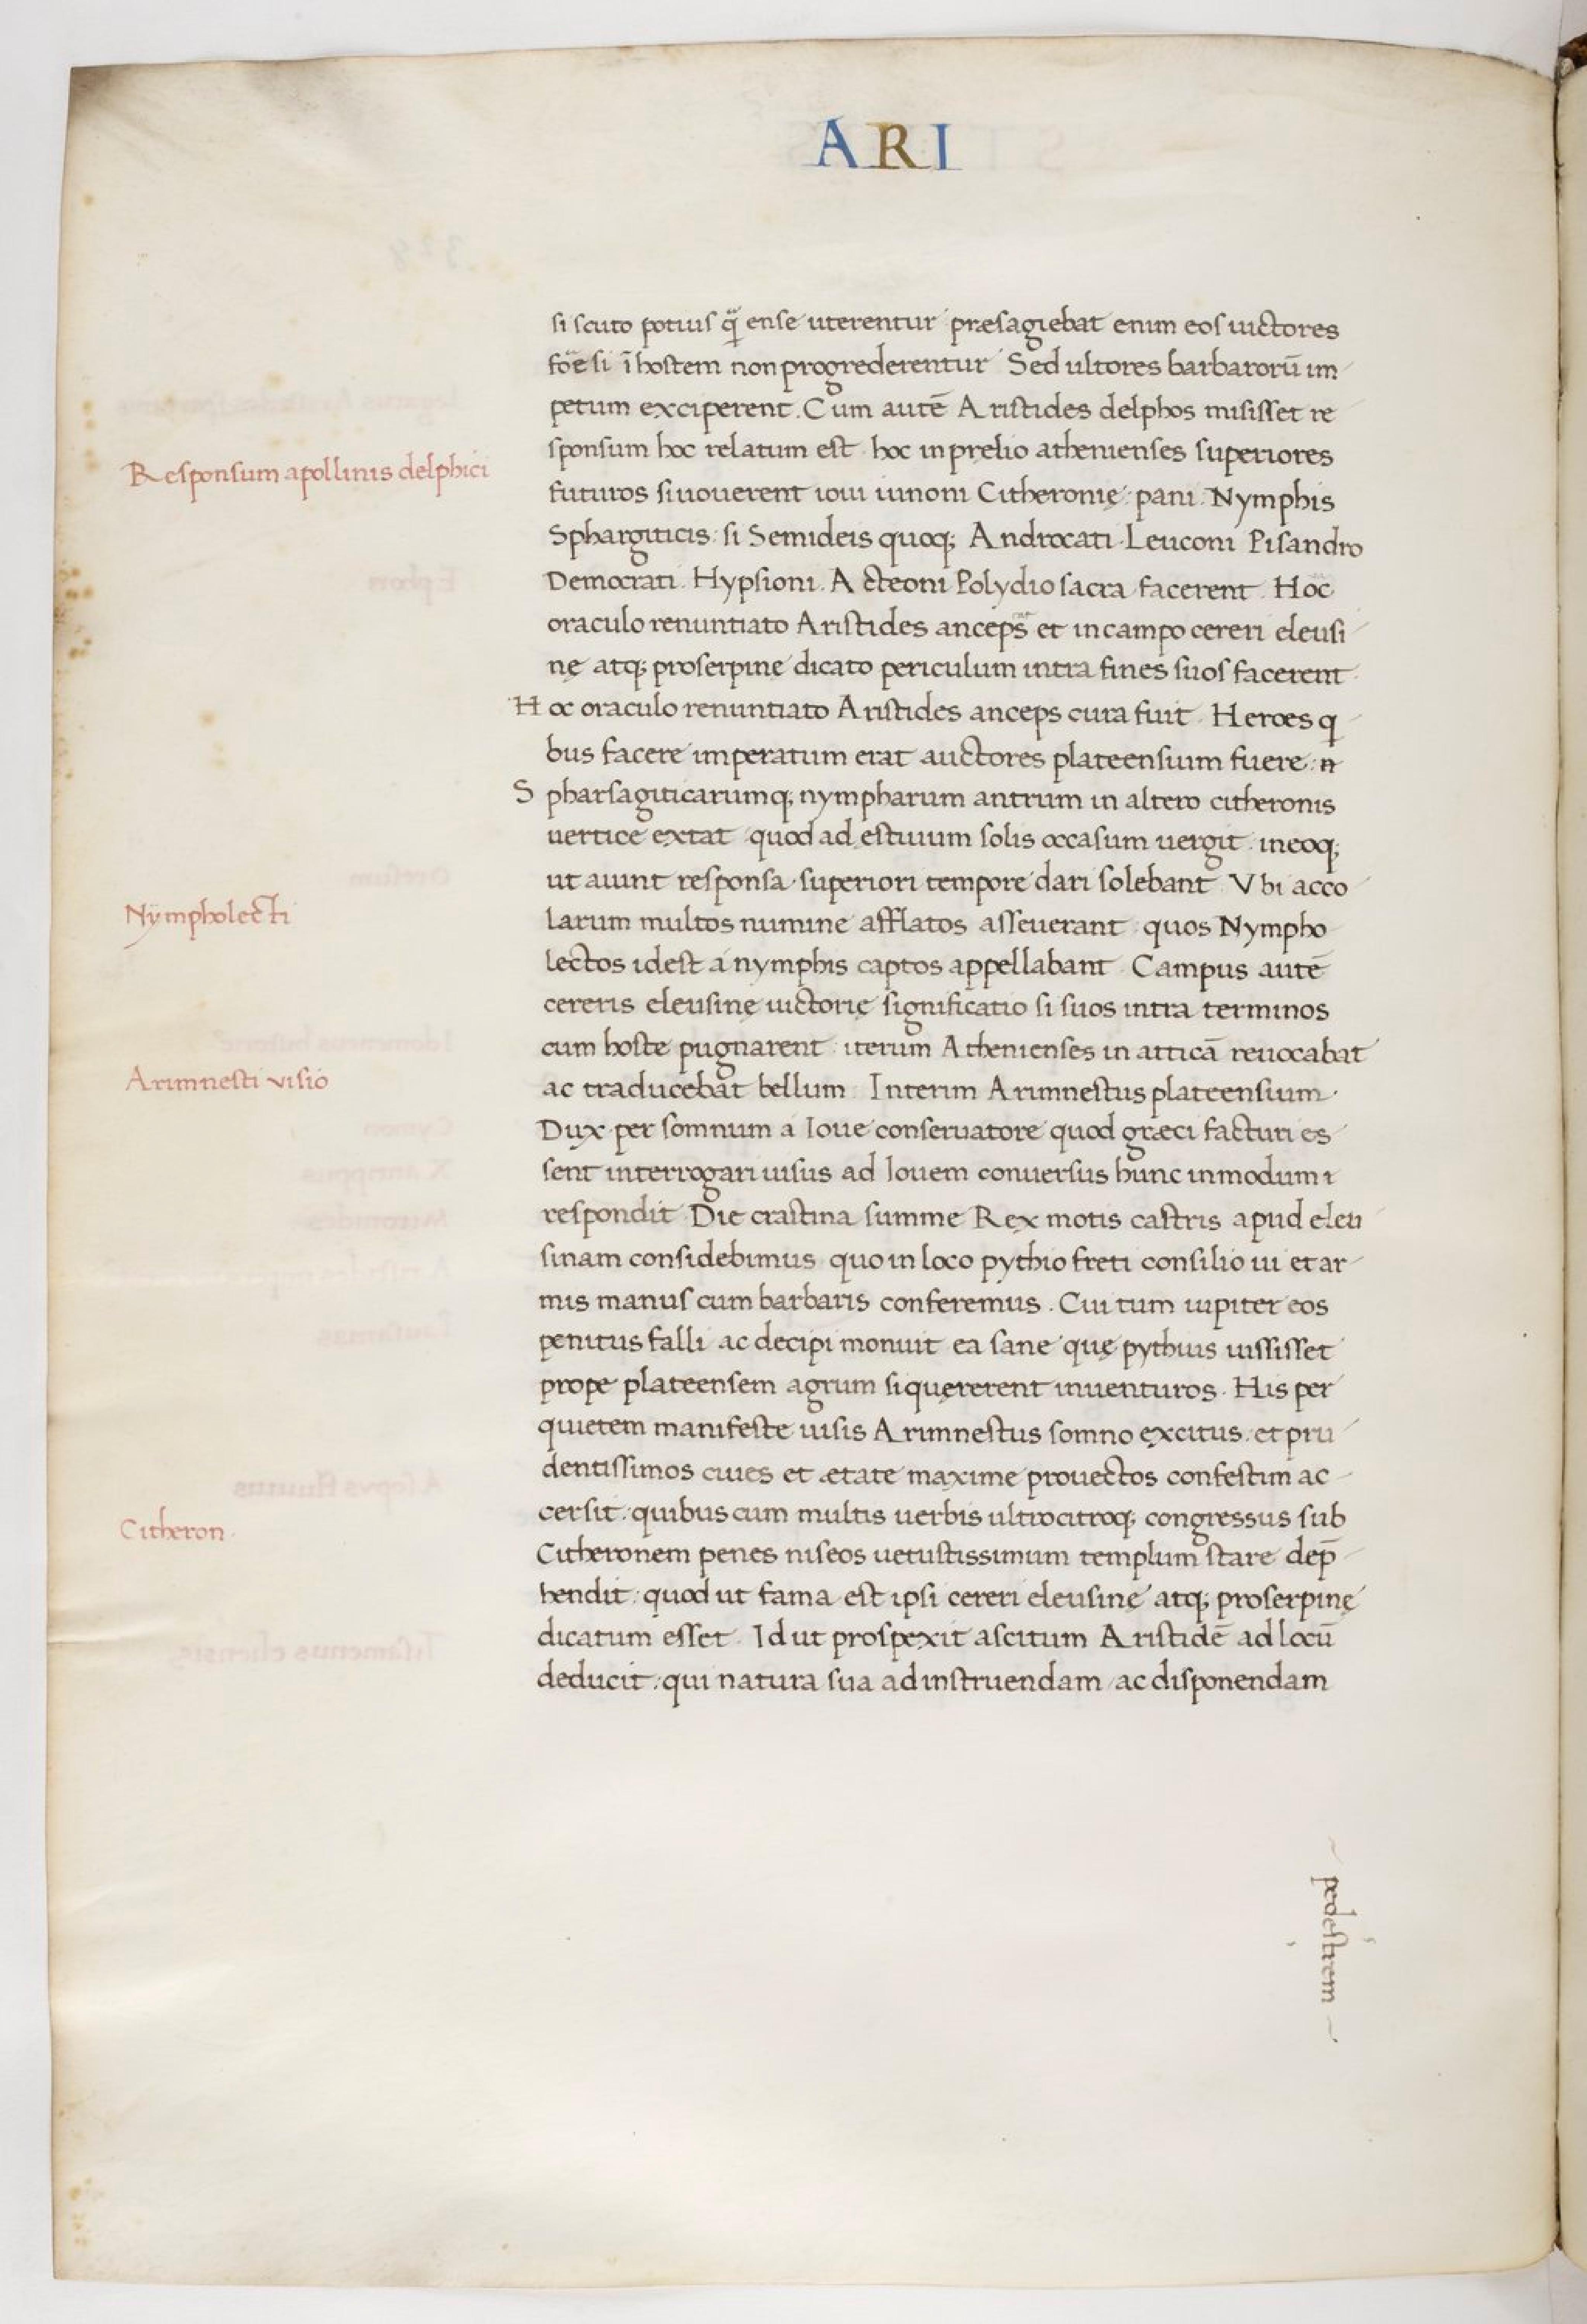 ARI
si scuto potius q̄ ense uterentur præsagiebat enim eos uictores
foře si ī hostem non progrederentur Sed ultores barbarorū im
petum exciperent. Cum autē Aristides delphos misisset re
sponsum hoc relatum est hoc in prelio athenienses superiores
Responsum apollinis delphici
futuros si uouerent ioui iunoni Citheronię: pani. Nymphis
Sphargiticis: si Semideis quoq; Androcati. Leuconi Pisandro
Democrati. Hypsioni. Acteoni Polydio sacra facerent. Hoc
oraculo renuntiato Aristides anceps et in campo cereri eleusi
nę atq; proserpinę dicato periculum intra fines suos facerent.
Hoc oraculo renuntiato Aristides anceps cura fuit. Heroes q
bus facere imperatum erat auctores plateensium fuere:
Spharsagiticarumq; nympharum antrum in altero citheronis
uertice extat quod ad ęstiuum solis occasum uergit. in eoq;
ut aiunt responsa superiori tempore dari solebant. Vbi acco
Nÿmpholecti
larum multos numine afflatos asseuerant quos Nympho
lectos idest a nymphis captos appellabant Campus autē
cereris eleusinę uictorię significatio si suos intra terminos
cum hoste pugnarent iterum Athenienses in atticā reuocabat
Arimnesti visio
ac traducebat bellum. Interim Arimnestus plateensium.
Dux per somnum a Ioue conseruatore quod græci facturi es
sent interrogari uisus ad Iouem conuersus hunc in modum
respondit. Die crastina summe Rex motis castris apud eleu
sinam considebimus quo in loco pythio freti consilio ui et ar
mis manus cum barbaris conferemus. Cui tum iupiter eos
penitus falli ac decipi monuit ea sane quę pythius iussisset
prope plateensem agrum si quęrerent inuenturos. His per
quietem manifeste uisis Arimnestus somno excitus. et pru
dentissimos ciues et ætate maxime prouectos confestim ac
cersit: quibus cum multis uerbis ultrocitroq; congressus sub
Citheron.
Citheronem penes niseos uetustissimum templum stare dep̄
hendit: quod ut fama est ipsi cereri eleusinę atq; proserpinę
dicatum esset. Id ut prospexit ascitum Aristidē ad locū
deducit: qui natura sua ad instruendam ac disponendam
pedestrem